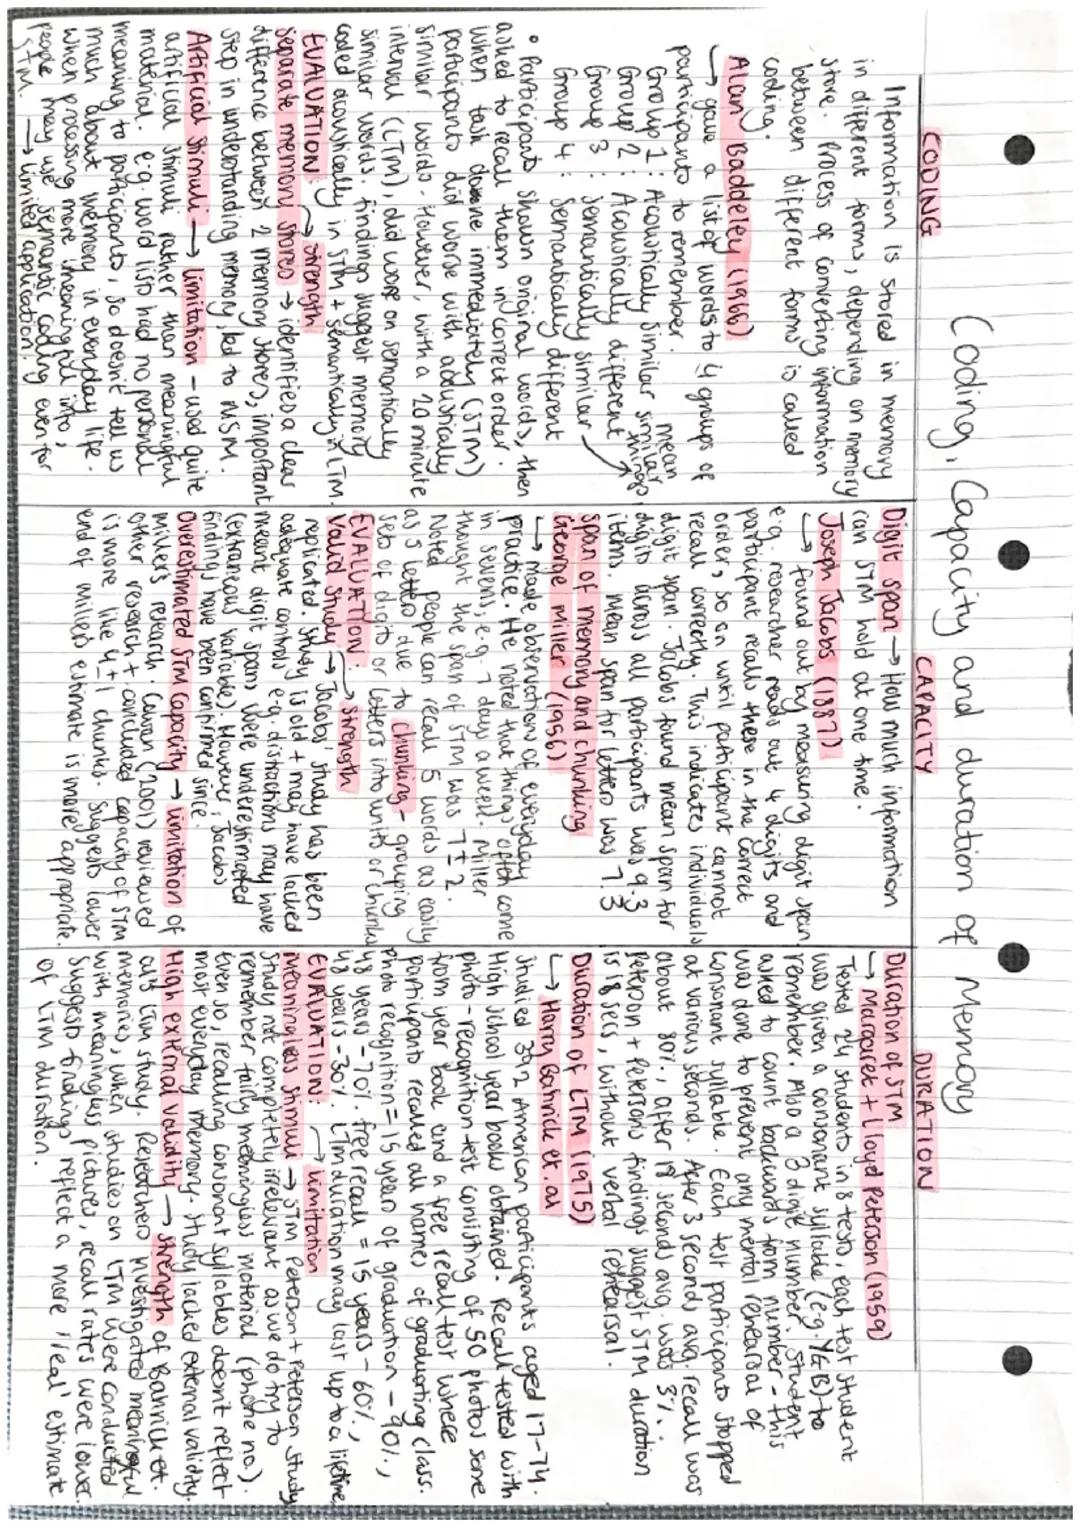 Coding, Capacity and duration of Memory
CODING
Information is stored in memory
in different forms, depending on memory
store. Process of converting information
between different forms is called
coding.
Alan Baddeley (1966)
→ gave a list of words to 4 groups of
participants to remember.
Group 1: Acoustically similar
Group 2: Acoustically different
Group 3: Semantically similar
Group 4: Semantically different
mean
similar
things
• Participants shown original words, then
asked to recall them in correct order.
When task done immediately (STM)
participants did worse with acoustically
similar words. However, with a 20 minute
interval (LTM), did worse on semantically
similar words. Findings suggest memory
coded acoustically in STM + semantically in LTM.
EVALUATION: → strength
Separate memory stores → identifies a clear
difference between 2 memory stores, important
step in understanding memory, led to MSM.
Artificial Stimuli → limitation - used quite
artificial stimuli rather than meaningful
material. e.g. word list had no personal
meaning to participants, so doesn't tell us
much about memory in everyday life.
When processing more meaningful info,
people may use semantic coding even for
STM. → limited application.
CAPACITY
Digit span → How much information
can STM hold at one time.
Joseph Jacobs (1887)
→ found out by measuring digit span
e.g. researcher reads out 4 digits and
participant recalls these in the correct
order, so on until participant cannot
recall correctly. This indicates individuals
digit span. Jacobs found mean span for
digits across all participants was 9.3
items. Mean span for letters was 7.3
span of memory and chunking
George Miller (1956)
→ Made observations of everyday
practice. He noted that things often come
in sevens, e.g. 7 day a week. Miller
thought the span of STM was 7 ± 2.
Noted people can recall 5 words as easily
as 5 letters due to chunking - grouping
sets of digits or letters into units or chunks
EVALUATION: → strength
Valid study → Jacobs' study has been
replicated. Study is old + may have lacked
adequate controls e.g. distractions may have
meant digit spans were underestimated
(extraneous variable). However, Jacobs
findings have been confirmed since.
Overestimated STM capacity → limitation of
Miller's research. Cowan (2001) reviewed
other research + concluded capacity of STM
is more like 4 ± 1 chunks. Suggests lower
end of Miller's estimate is more appropriate.
DURATION
Duration of STM
→ Margaret + Lloyd Peterson (1959)
Tested 24 students in 8 tests, each test student
was given a consonant syllable (e.g. YGB) to
remember. Also a 3 digit number. Student
asked to count backwards from number - this
was done to prevent any mental rehearsal of
consonant syllable. Each test participants stopped
at various seconds. After 3 seconds avg. recall was
about 80%, after 18 seconds avg. was 3%.
Peterson + Petersons findings suggest STM duration
is 18 secs, without verbal rehearsal.
Duration of LTM (1975)
→ Harry Bahrick et. al
Studied 392 American participants aged 17-74.
High school year books obtained. Recall tested with
photo-recognition test consisting of 50 photos some
from year book and a free recall test where
participants recalled all names of graduating class.
Photo recognition = 15 years of graduation - 90%,
48 years - 70%. Free recall = 15 years - 60%,
48 years - 30%. LTM duration may last up to a lifetime.
EVALUATION: → limitation
Meaningless stimuli → STM, Peterson + Peterson study.
Study not completely irrelevant as we do try to
remember fairly meaningless material (phone no.)
Even so, recalling consonant syllables doesn't reflect
most everyday memory. Study lacked external validity.
High external validity → strength of Bahrick et.
al's LTM study. Researchers investigated meaningful
memories, when studies on LTM were conducted
with meaningless pictures, recall rates were lower.
Suggests findings reflect a more 'real' estimate
of LTM duration.